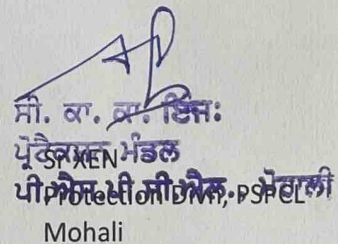 ਸੀ. ਕਾ. ਕਾ. ਇੰਜ:
ਪ੍ਰੋਟੈਕਸ਼ਨ ਮੰਡਲ
Sr XEN
ਪੀ.ਐਸ.ਪੀ.ਸੀ.ਐਲ., ਮੋਹਾਲੀ
Protection Divn, PSPCL
Mohali